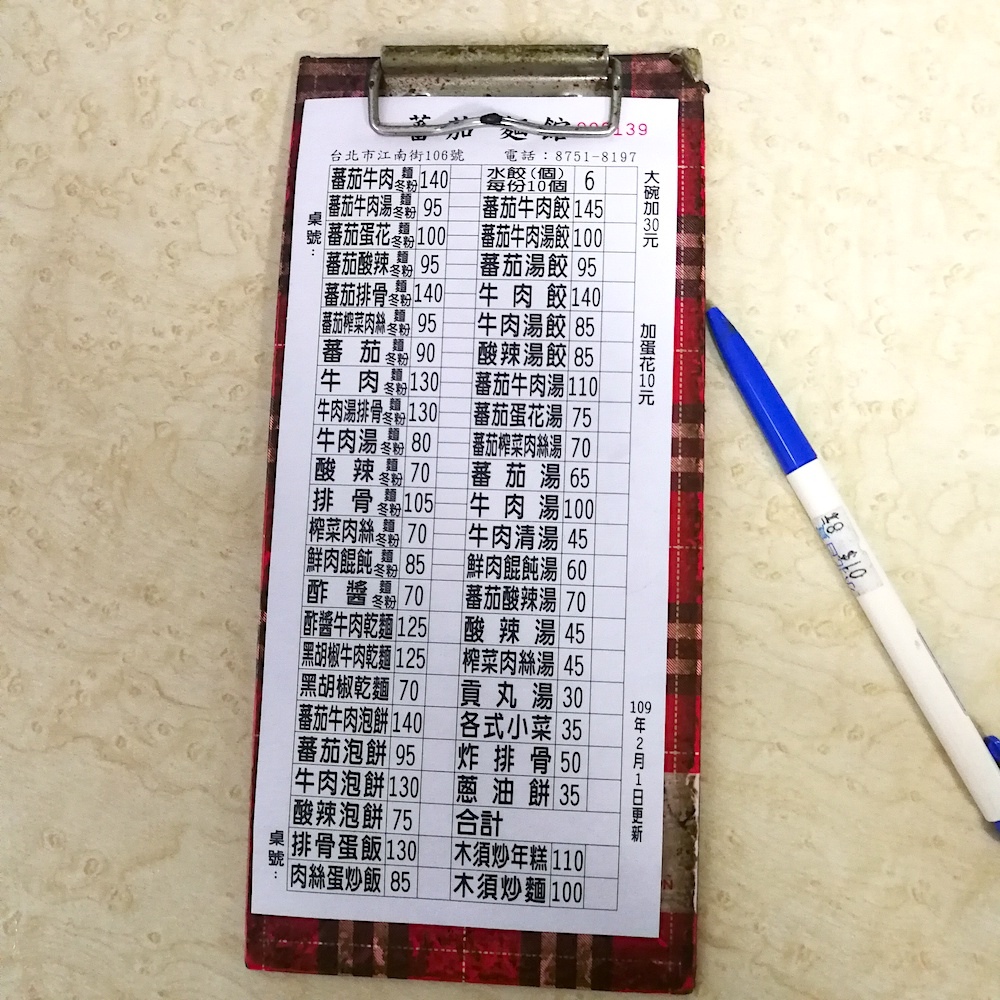 蕃茄麵館
139
台北市江南街106號 電話：8751-8197
桌號：
蕃茄牛肉麵冬粉 140
蕃茄牛肉湯麵冬粉 95
蕃茄蛋花麵冬粉 100
蕃茄酸辣麵冬粉 95
蕃茄排骨麵冬粉 140
蕃茄榨菜肉絲麵冬粉 95
蕃茄麵冬粉 90
牛肉麵冬粉 130
牛肉湯排骨麵冬粉 130
牛肉湯麵冬粉 80
酸辣麵冬粉 70
排骨麵冬粉 105
榨菜肉絲麵冬粉 70
鮮肉餛飩麵冬粉 85
酢醬麵冬粉 70
酢醬牛肉乾麵 125
黑胡椒牛肉乾麵 125
黑胡椒乾麵 70
蕃茄牛肉泡餅 140
蕃茄泡餅 95
牛肉泡餅 130
酸辣泡餅 75
排骨蛋飯 130
肉絲蛋炒飯 85
桌號：
水餃(個)
每份10個 6
蕃茄牛肉餃 145
蕃茄牛肉湯餃 100
蕃茄湯餃 95
牛肉餃 140
牛肉湯餃 85
酸辣湯餃 85
蕃茄牛肉湯 110
蕃茄蛋花湯 75
蕃茄榨菜肉絲湯 70
蕃茄湯 65
牛肉湯 100
牛肉清湯 45
鮮肉餛飩湯 60
蕃茄酸辣湯 70
酸辣湯 45
榨菜肉絲湯 45
貢丸湯 30
各式小菜 35
炸排骨 50
蔥油餅 35
合計
木須炒年糕 110
木須炒麵 100
大碗加30元
加蛋花10元
109年2月1日更新
$10